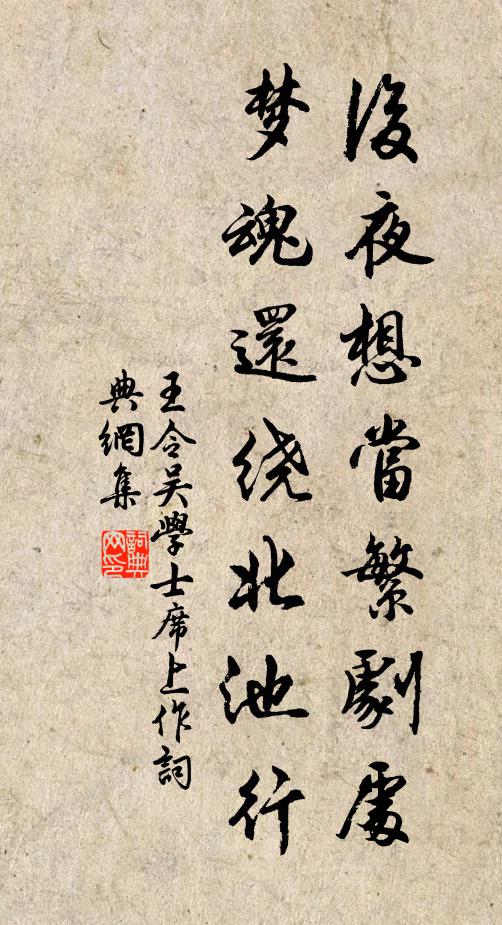 後夜想當繁劇處
梦魂還绕北池行
王令吴學士席上作詞
典網集
詞典
网印